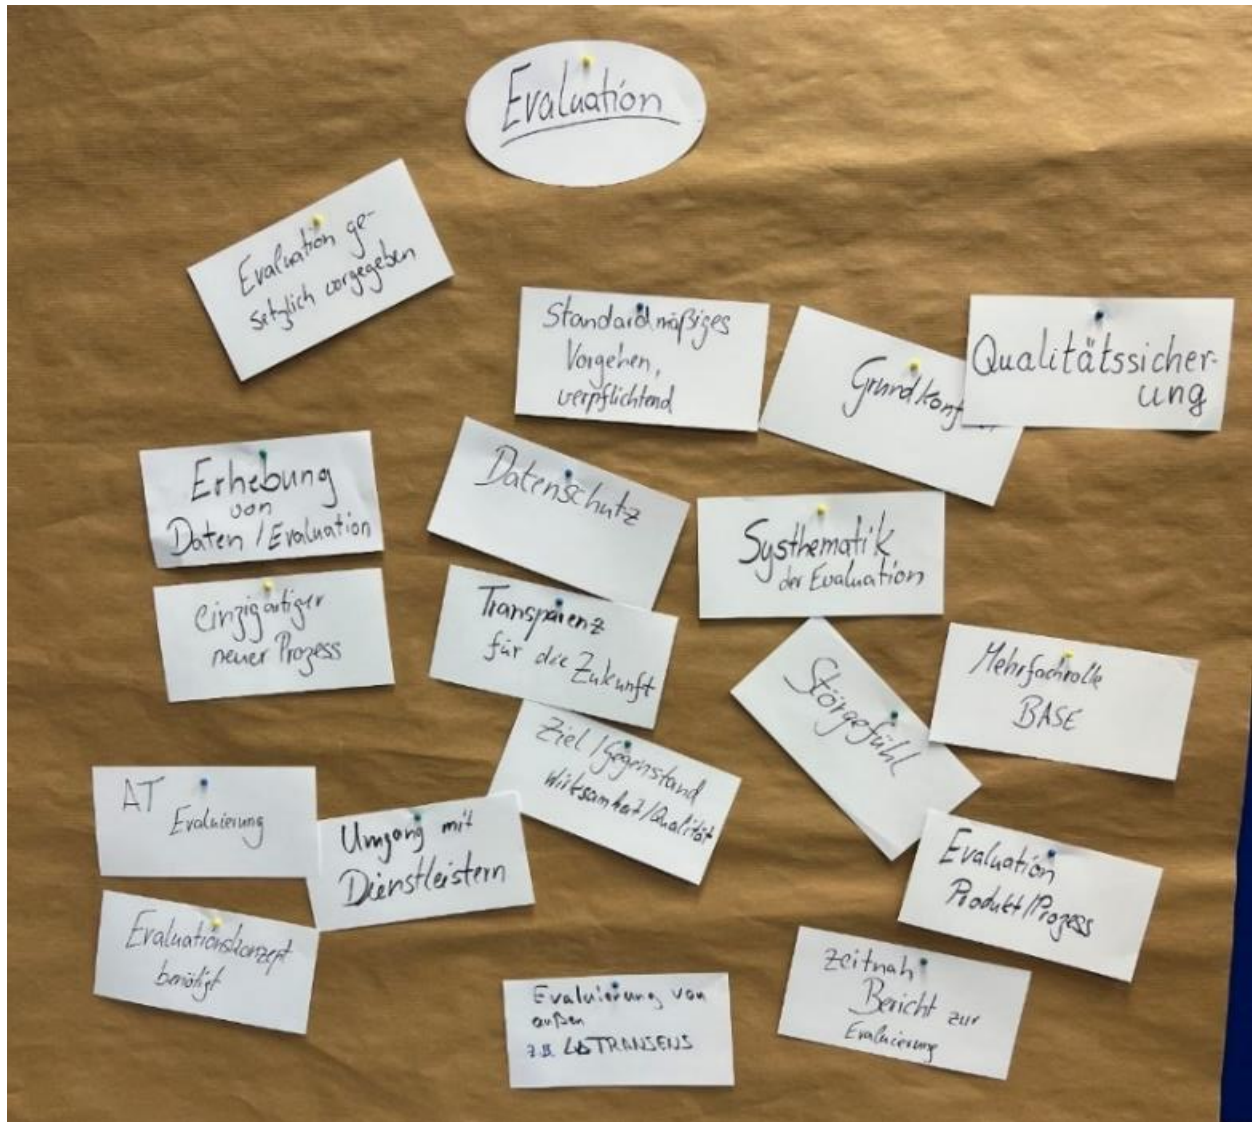 Evaluation
Evaluation ge-
setzlich vorgegeben
Standardmäßiges
Vorgehen,
verpflichtend
Qualitätssicher-
ung
Erhebung
von
Daten / Evaluation
Datenschutz
Systhematik
der Evaluation
einzigartiger
neuer Prozess
Transparenz
für die Zukunft
Störgefühl
Mehrfachrolle
BASE
Ziel / Gegenstand
Wirksamkeit / Qualität
AT
Evaluierung
Umgang mit
Dienstleistern
Evaluation
Produkt / Prozess
Evaluationskonzept
benötigt
zeitnah
Bericht zur
Evaluierung
Evaluierung von
außen
z.B. TRANSENS